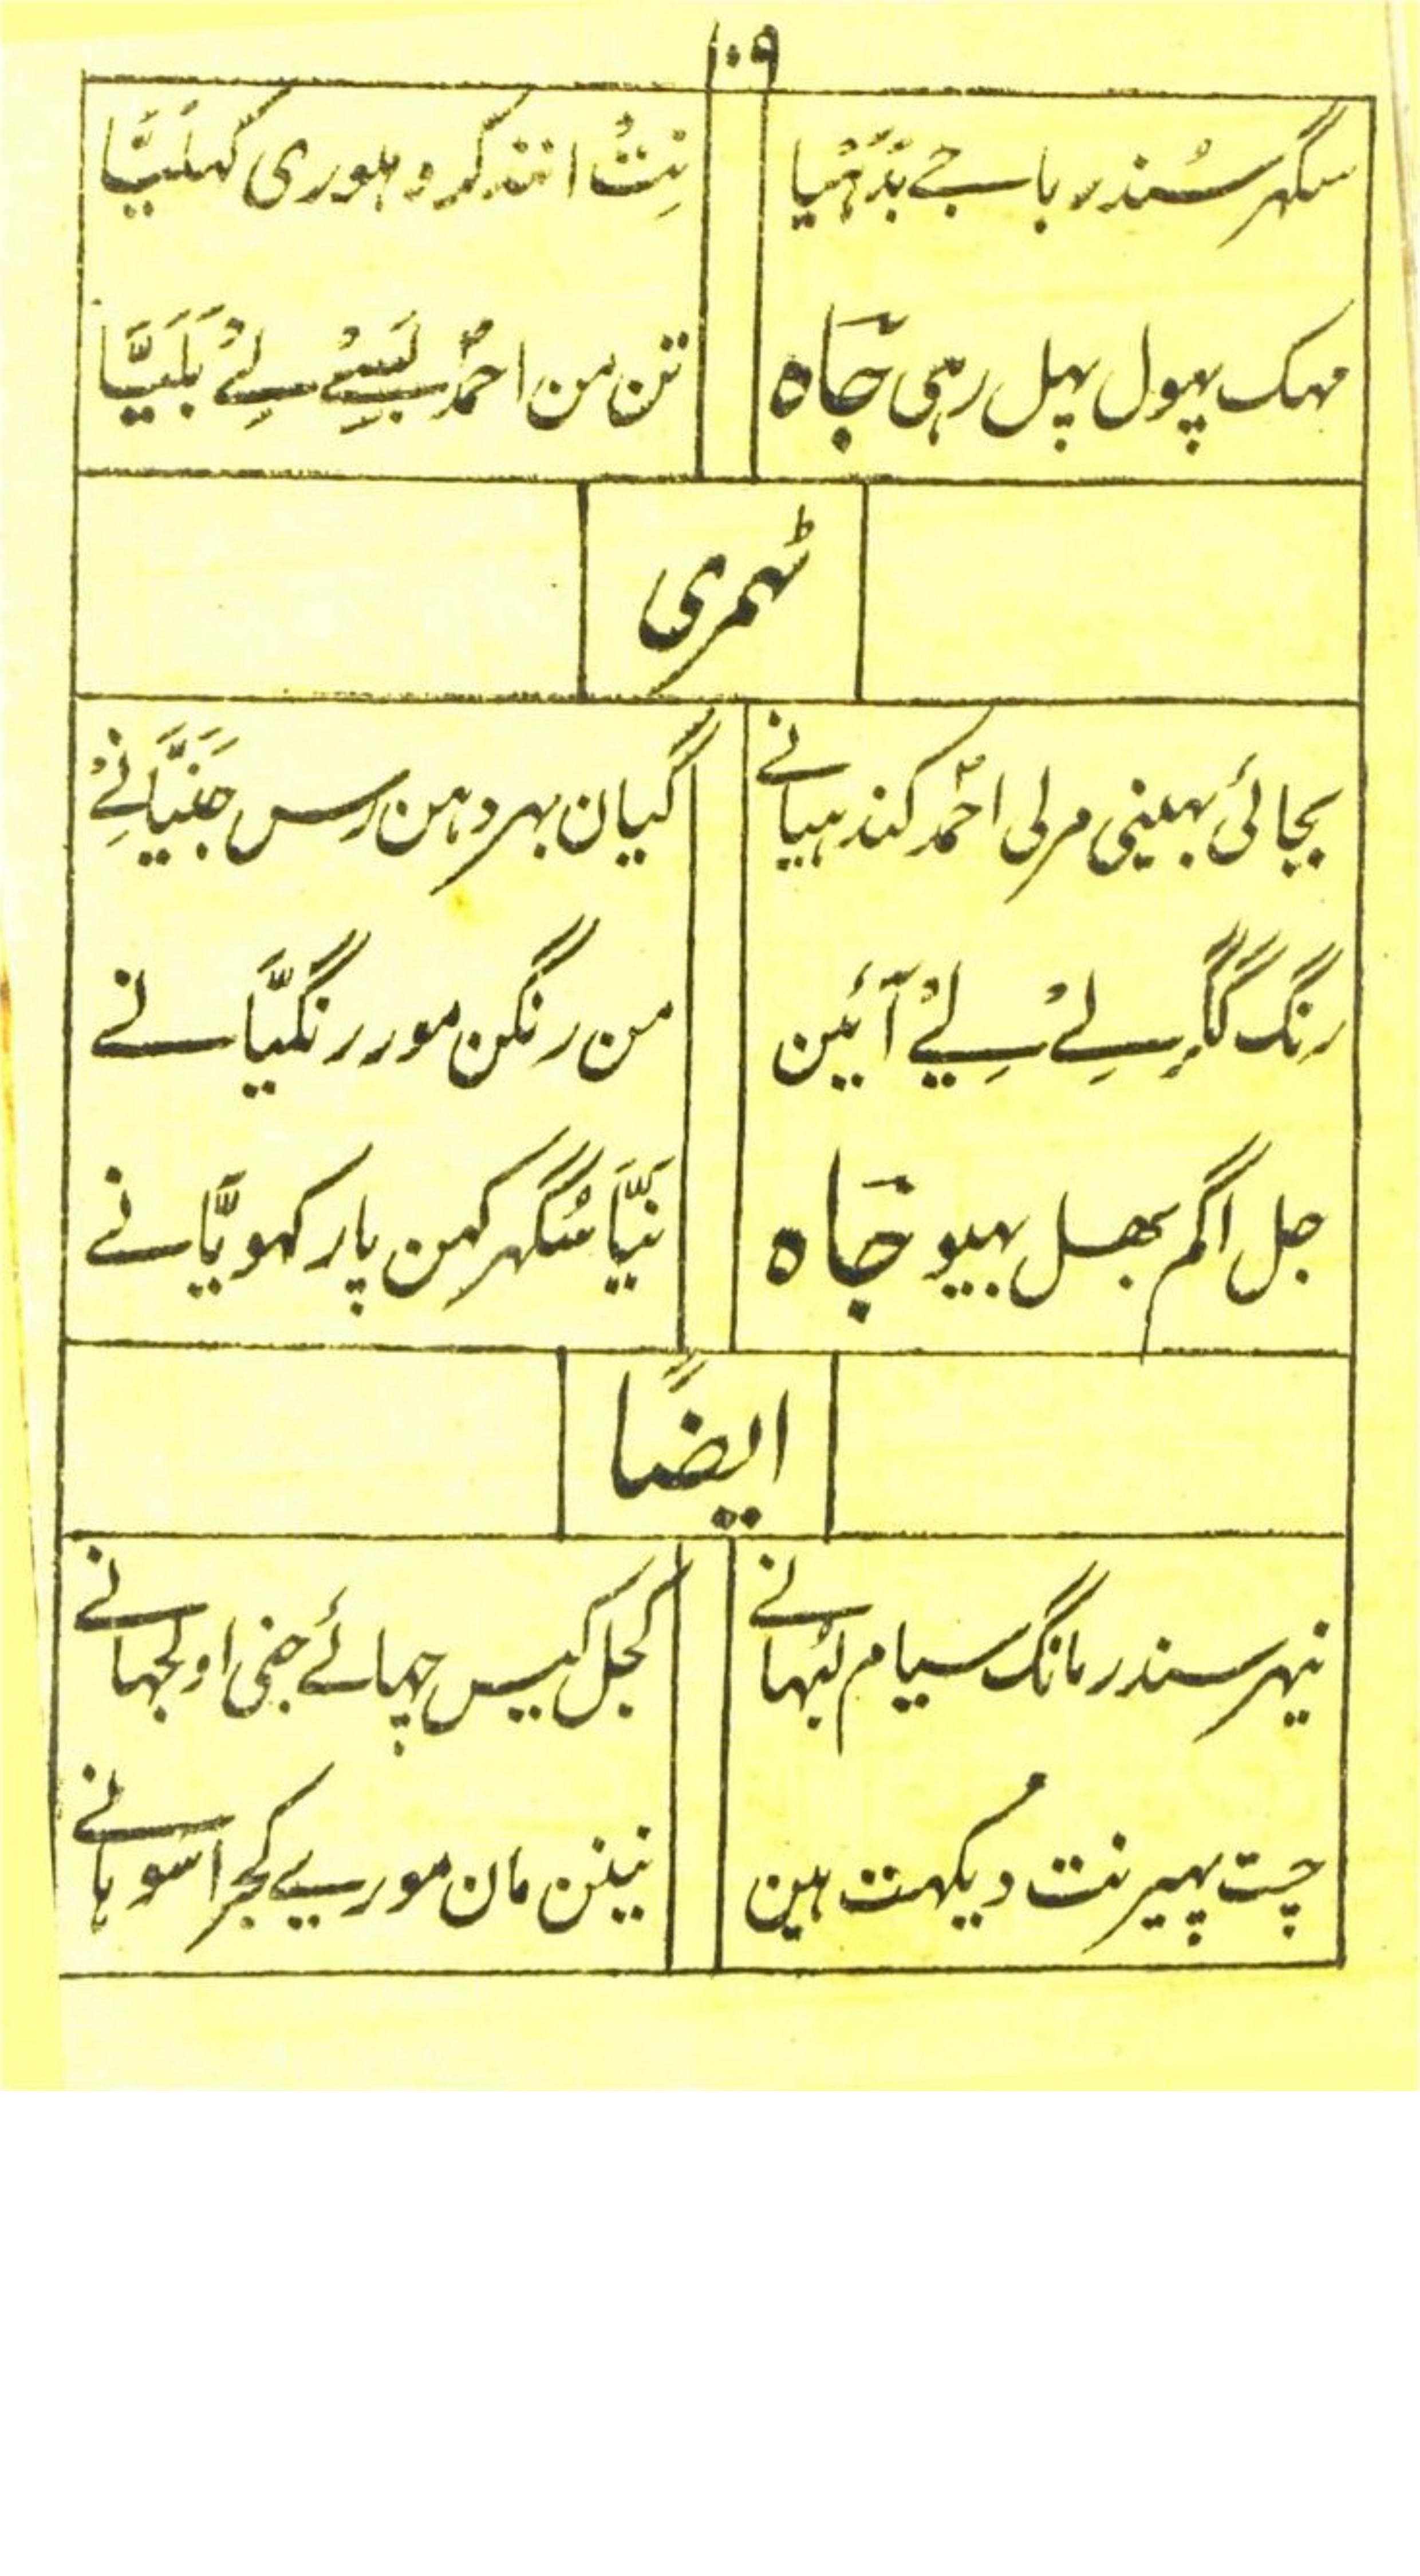 ۱۰۹
سگھر سُندر باجے بدہیا نِتْ انند کرو ہلوری کہلیَّا
مہک پہول پہل رہی جَاہ تن من احمدؐ لَیسےْ لِےْ بَلَیَّا
ٹہمری
بجائی بہینی مرلی احمدؐ کندہیانے گیان بہر دہن رس جَنَیَّانےْ
رنگ گاگر لےْ لیےْ آئین من رنگن مور رنگیَّانے
جل اگم بھل بہیو جَاہ نَیَّا سُگہر کہن پار کہویَّانے
ایضًا
نیہر سندر مانگ سیام لبہانے کجل کیس چہپائے جنی اولجہانے
چت پہیر نت دیکہت ہین نینن مان مورے کجرا سوہانے